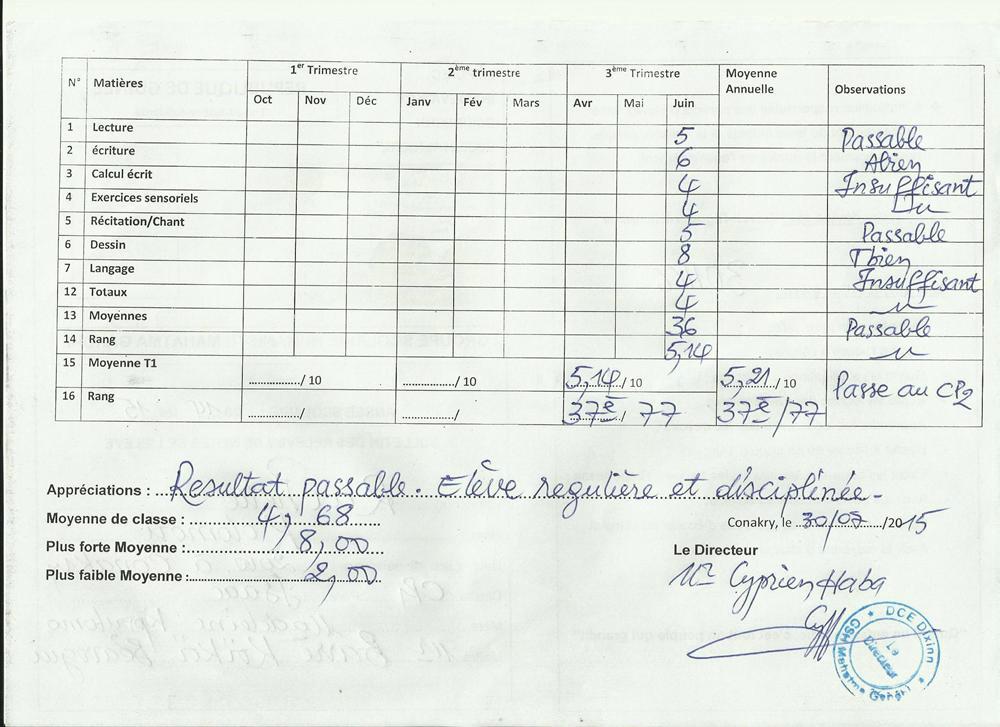 N° Matières 1er Trimestre 2ème trimestre 3ème Trimestre Moyenne Annuelle Observations
Oct Nov Déc Janv Fév Mars Avr Mai Juin
1 Lecture 5 Passable
2 écriture 6 Abien
3 Calcul écrit 4 Insuffisant
4 Exercices sensoriels 4
5 Récitation/Chant 5 Passable
6 Dessin 8 Tbien
7 Langage 4 Insuffisant
12 Totaux 4
13 Moyennes 36 Passable
14 Rang 5,14
15 Moyenne T1 ............../ 10 ............../ 10 5,14 / 10 5,21 / 10 Passe au CP2
16 Rang ............../ ............../ 37è / 77 37è /77
Appréciations : Resultat passable. Elève regulière et disciplinée-
Moyenne de classe : 4, 68
Plus forte Moyenne : 8,00
Plus faible Moyenne : 2,00
Conakry, le 30/07 /2015
Le Directeur
Mr Cyprien Haba
DCE Dixinn
Le Directeur
GSH Mahatma Gandhi